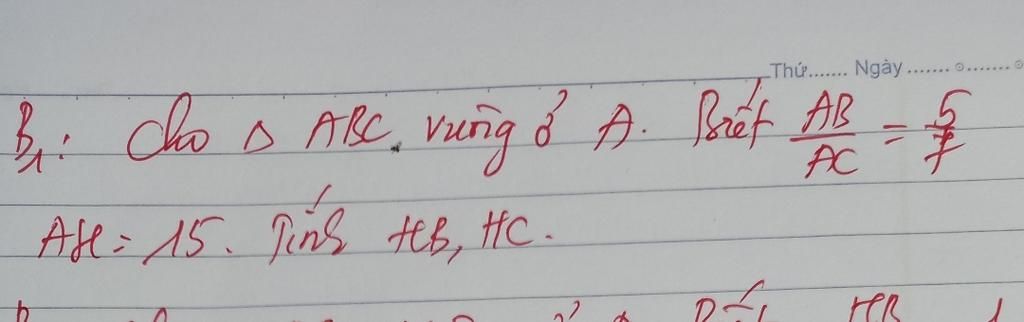 Thứ....... Ngày ....................
B1: Cho Δ ABC. vuông ở A. Biết AB/AC = 5/7
AH = 15. Tính HB, HC.
HB